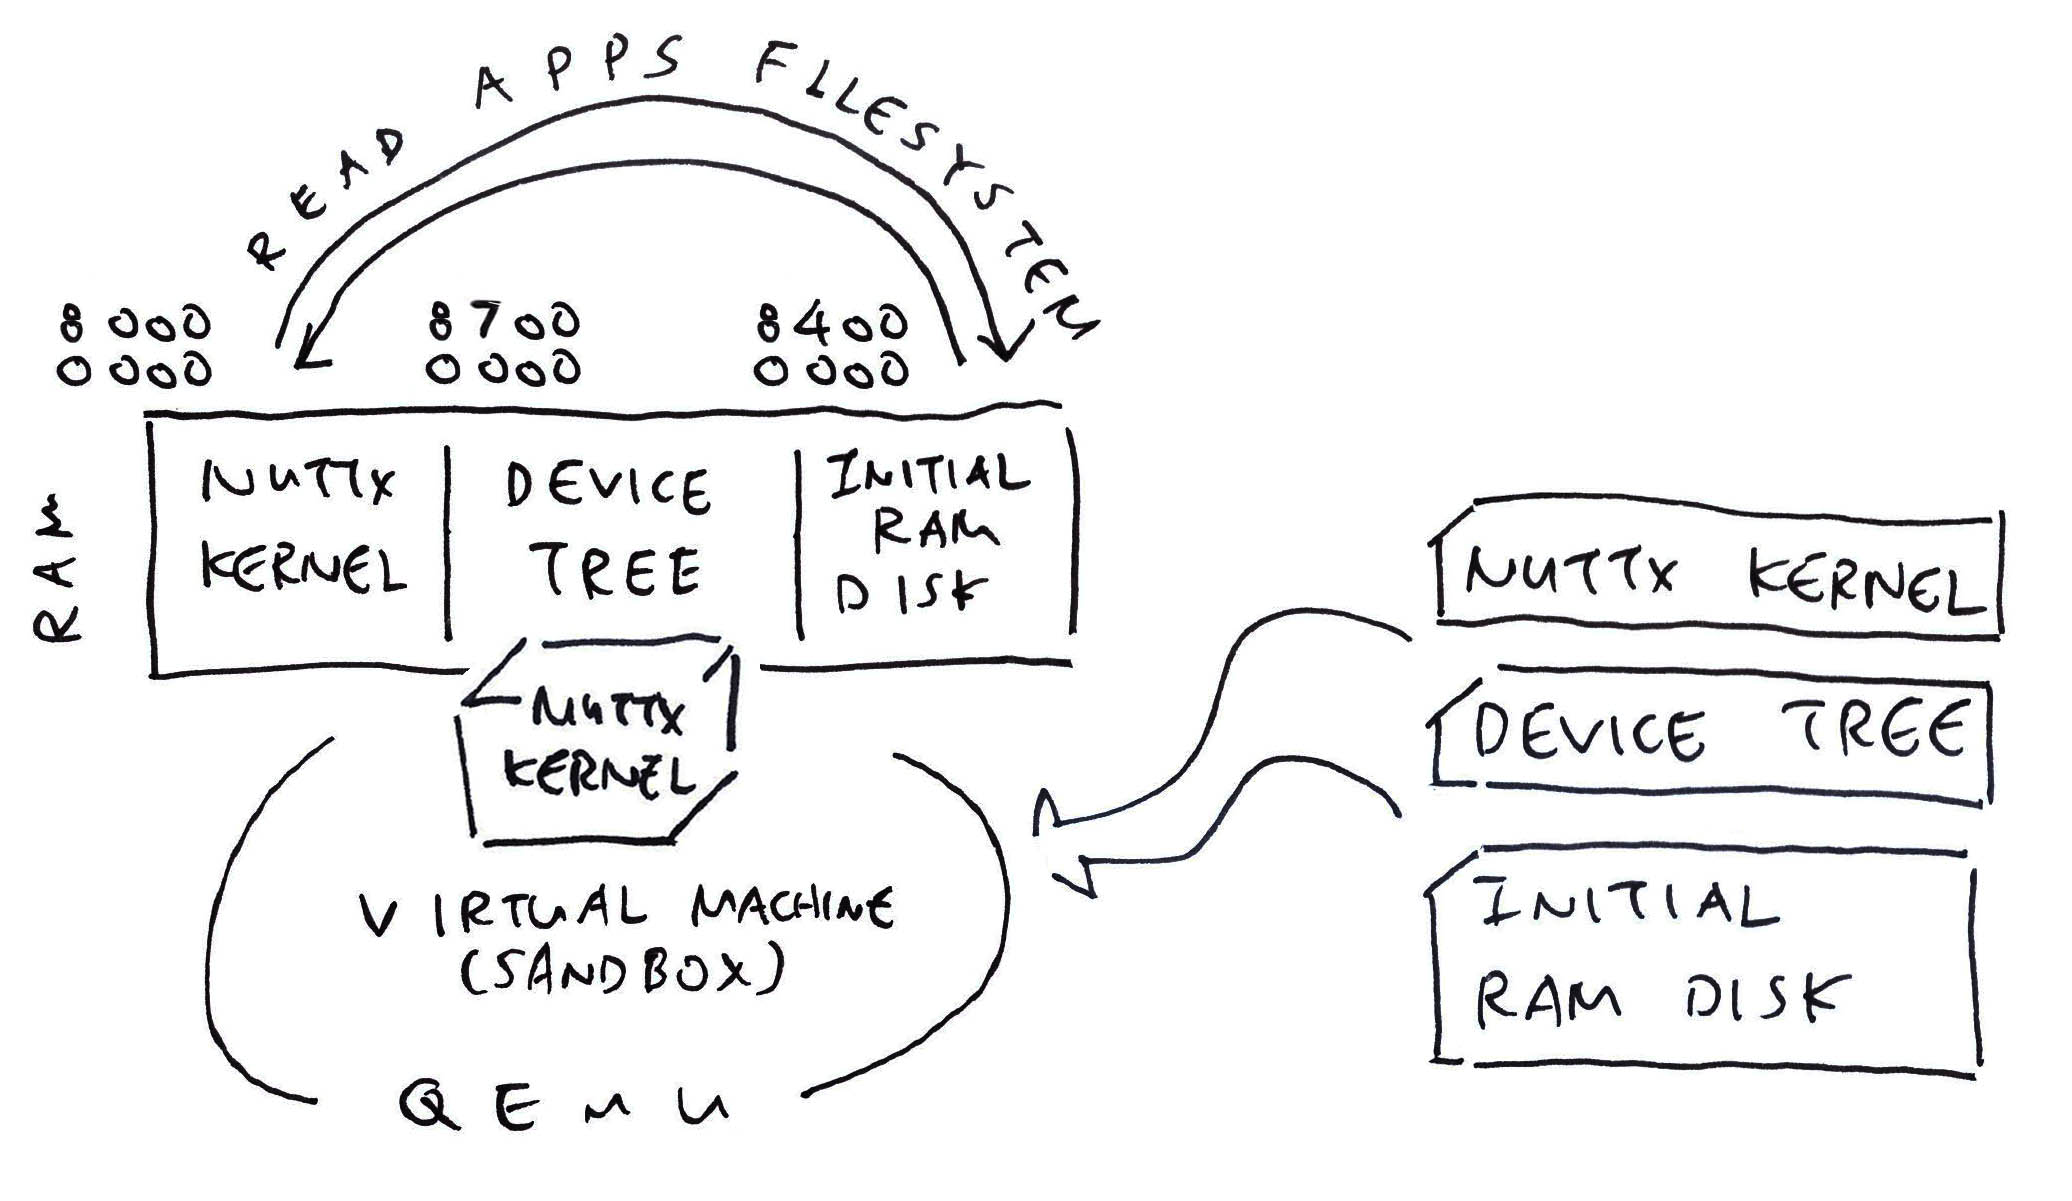 READ APPS FILESYSTEM
8000
0000
8700
0000
8400
0000
RAM
NUTTX
KERNEL
DEVICE
TREE
INITIAL
RAM
DISK
NUTTX
KERNEL
VIRTUAL MACHINE
(SANDBOX)
QEMU
NUTTX KERNEL
DEVICE TREE
INITIAL
RAM DISK